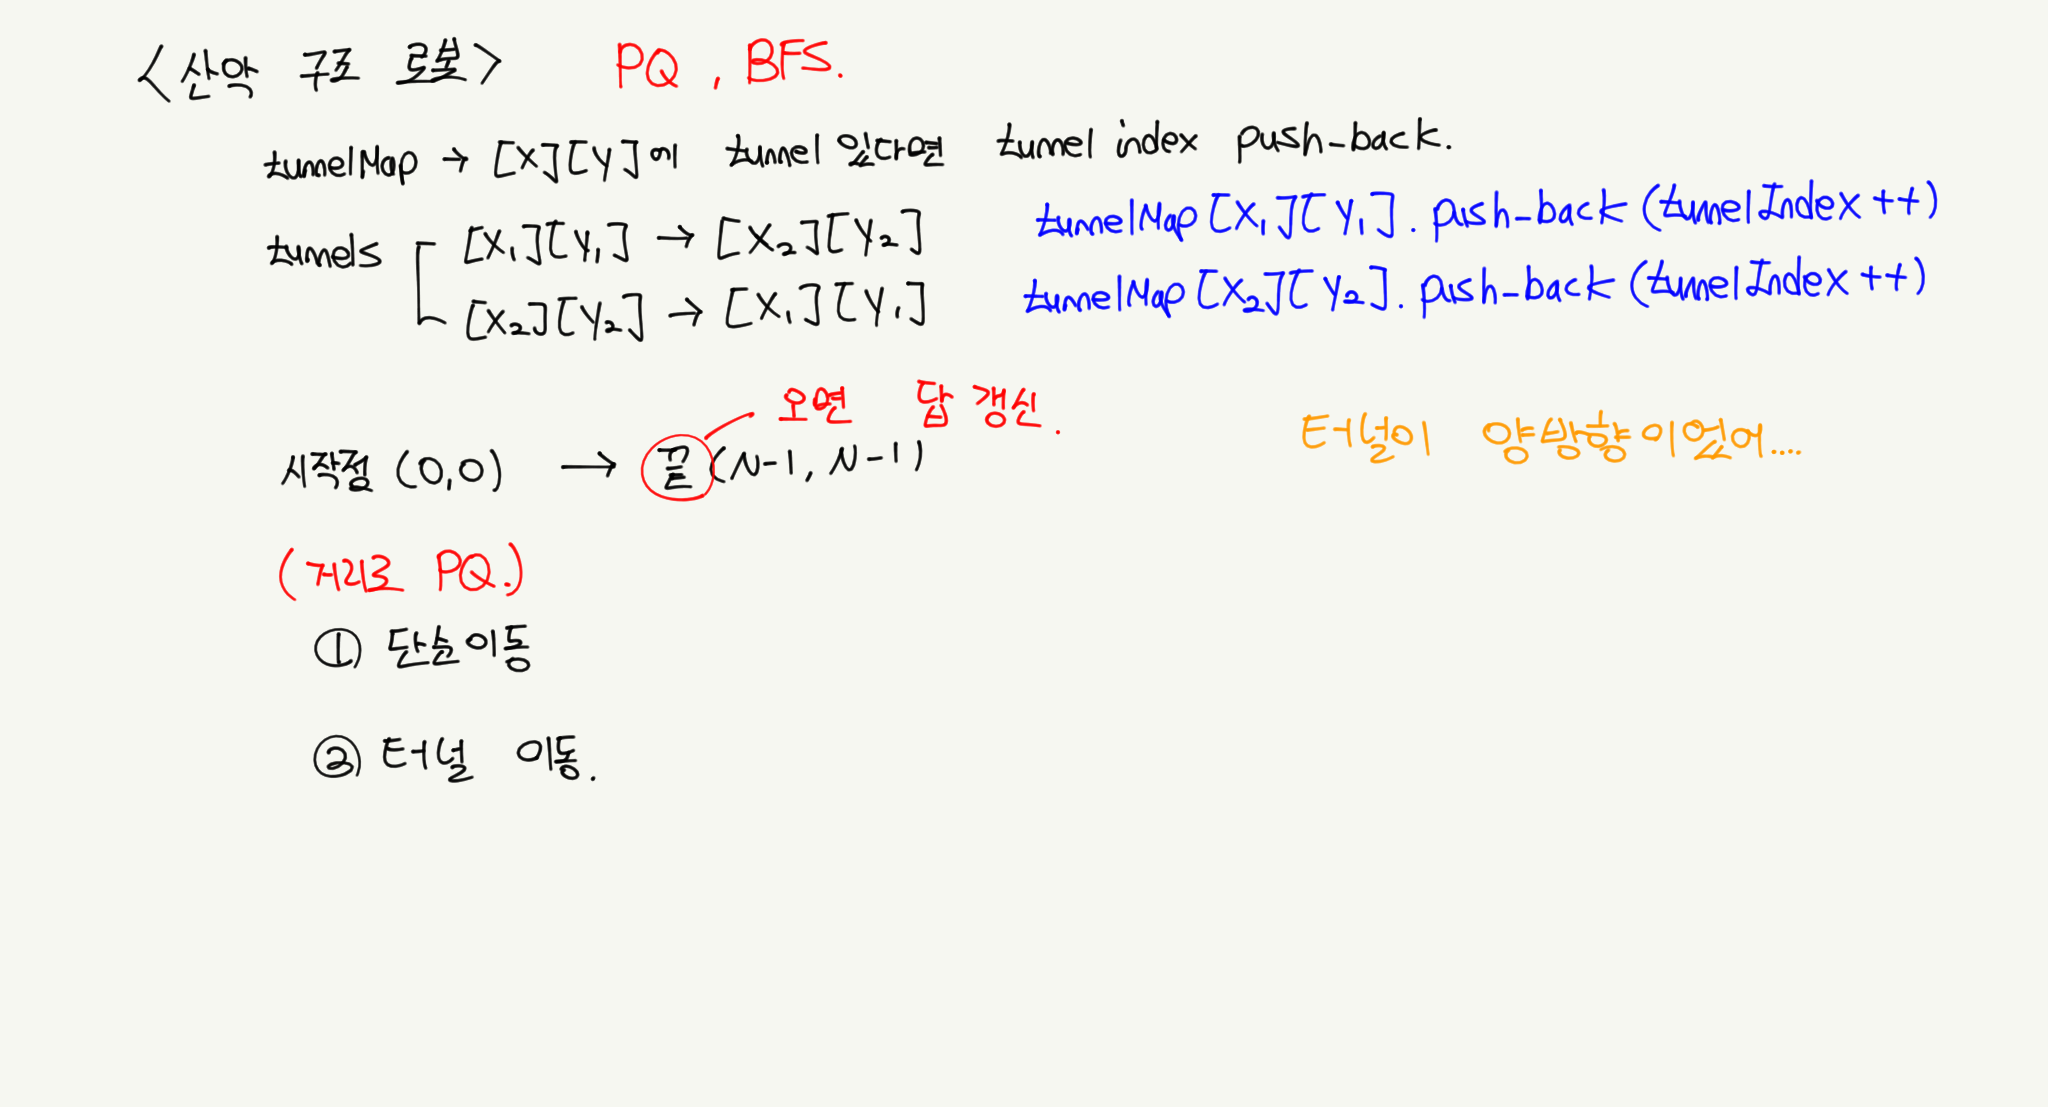 <산악 구조 로봇> PQ, BFS.
tunnelMap → [X][Y]에 tunnel 있다면 tunnel index push-back.
tunnels [X₁][Y₁] → [X₂][Y₂] tunnelMap[X₁][Y₁].push-back(tunnelIndex++)
[X₂][Y₂] → [X₁][Y₁] tunnelMap[X₂][Y₂].push-back(tunnelIndex++)
오면 답 갱신.
시작점 (0,0) → 끝(N-1, N-1)
터널이 양방향이었어....
(거리로 PQ.)
① 단순이동
② 터널 이동.